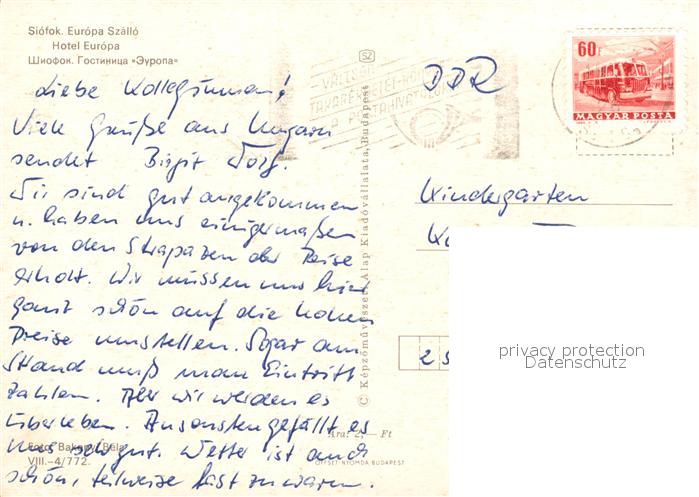 Siófok. Európa Szálló
Hotel Európa
Шиофок. Гостиница «Эуропа»
Liebe Kolleginnen!
Viele Grüße aus Ungarn
sendet Birgit
Wir sind gut angekommen
u. haben uns einigermaßen
von den Strapazen der Reise
erholt. Wir müssen uns hier
ganz schön auf die hohen
Preise umstellen. Sogar am
Strand muß man Eintritt
zahlen. Aber wir werden es
überleben. Ansonsten gefällt es
uns sehr gut. Wetter ist auch
schön, teilweise fast zu warm.
Foto: Bakonyi Béla
VIII.–4/772.
© Képzőművészeti Alap Kiadóvállalata, Budapest
SZ
TAKARÉK
A POSTAHIVATAL
DDR
60f
MAGYAR POSTA
Kindergarten
25
Ára: 2,— Ft
OFFSET-NYOMDA, BUDAPEST
privacy protection
Datenschutz